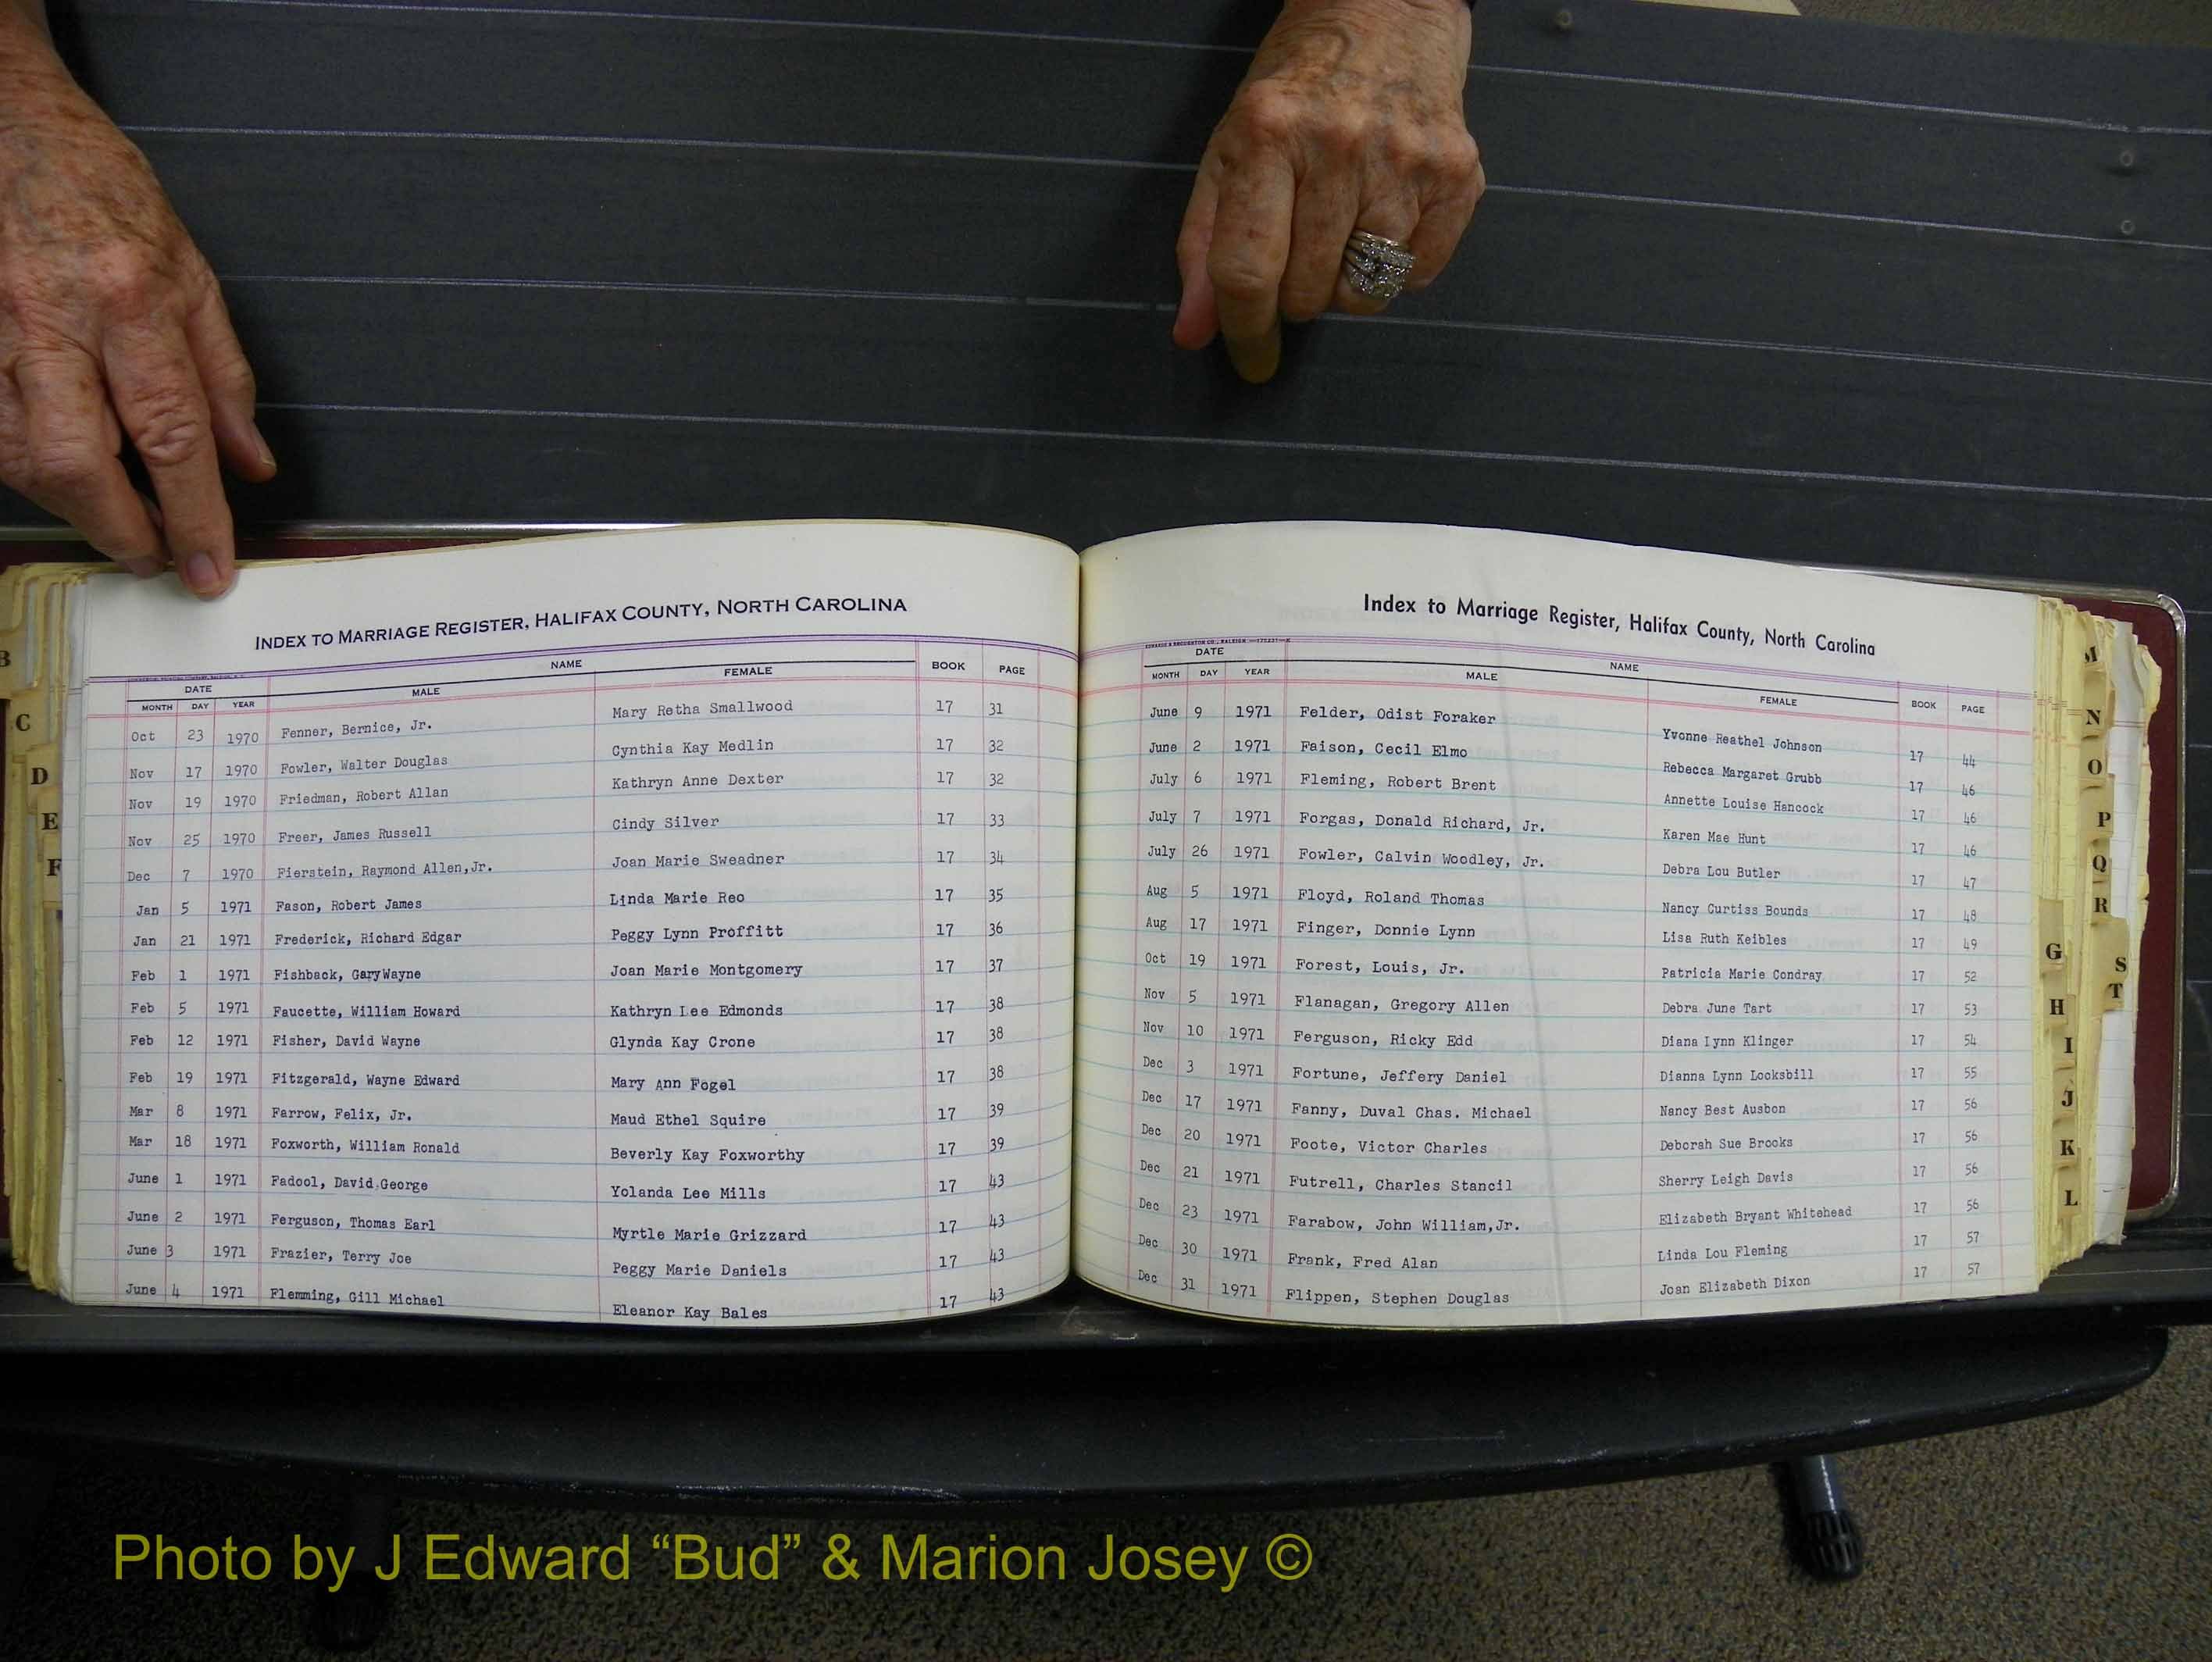 INDEX TO MARRIAGE REGISTER, HALIFAX COUNTY, NORTH CAROLINA
DATE NAME BOOK PAGE
MONTH DAY YEAR MALE FEMALE
Oct 23 1970 Fenner, Bernice, Jr. Mary Retha Smallwood 17 31
Nov 17 1970 Fowler, Walter Douglas Cynthia Kay Medlin 17 32
Nov 19 1970 Friedman, Robert Allan Kathryn Anne Dexter 17 32
Nov 25 1970 Freer, James Russell Cindy Silver 17 33
Dec 7 1970 Fierstein, Raymond Allen,Jr. Joan Marie Sweadner 17 34
Jan 5 1971 Fason, Robert James Linda Marie Reo 17 35
Jan 21 1971 Frederick, Richard Edgar Peggy Lynn Proffitt 17 36
Feb 1 1971 Fishback, GaryWayne Joan Marie Montgomery 17 37
Feb 5 1971 Faucette, William Howard Kathryn Lee Edmonds 17 38
Feb 12 1971 Fisher, David Wayne Glynda Kay Crone 17 38
Feb 19 1971 Fitzgerald, Wayne Edward Mary Ann Fogel 17 38
Mar 8 1971 Farrow, Felix, Jr. Maud Ethel Squire 17 39
Mar 18 1971 Foxworth, William Ronald Beverly Kay Foxworthy 17 39
June 1 1971 Fadool, David George Yolanda Lee Mills 17 43
June 2 1971 Ferguson, Thomas Earl Myrtle Marie Grizzard 17 43
June 3 1971 Frazier, Terry Joe Peggy Marie Daniels 17 43
June 4 1971 Flemming, Gill Michael Eleanor Kay Bales 17 43
Index to Marriage Register, Halifax County, North Carolina
DATE NAME BOOK PAGE
MONTH DAY YEAR MALE FEMALE
June 9 1971 Felder, Odist Foraker Yvonne Reathel Johnson 17 44
June 2 1971 Faison, Cecil Elmo Rebecca Margaret Grubb 17 46
July 6 1971 Fleming, Robert Brent Annette Louise Hancock 17 46
July 7 1971 Forgas, Donald Richard, Jr. Karen Mae Hunt 17 46
July 26 1971 Fowler, Calvin Woodley, Jr. Debra Lou Butler 17 47
Aug 5 1971 Floyd, Roland Thomas Nancy Curtiss Bounds 17 48
Aug 17 1971 Finger, Donnie Lynn Lisa Ruth Keibles 17 49
Oct 19 1971 Forest, Louis, Jr. Patricia Marie Condray 17 52
Nov 5 1971 Flanagan, Gregory Allen Debra June Tart 17 53
Nov 10 1971 Ferguson, Ricky Edd Diana Lynn Klinger 17 54
Dec 3 1971 Fortune, Jeffery Daniel Dianna Lynn Looksbill 17 55
Dec 17 1971 Fanny, Duval Chas. Michael Nancy Best Ausbon 17 56
Dec 20 1971 Foote, Victor Charles Deborah Sue Brooks 17 56
Dec 21 1971 Futrell, Charles Stancil Sherry Leigh Davis 17 56
Dec 23 1971 Farabow, John William,Jr. Elizabeth Bryant Whitehead 17 56
Dec 30 1971 Frank, Fred Alan Linda Lou Fleming 17 57
Dec 31 1971 Flippen, Stephen Douglas Joan Elizabeth Dixon 17 57
B
C
D
E
F
G
H
I
J
K
L
M
N
O
P
Q
R
S
T
Photo by J Edward “Bud” & Marion Josey ©